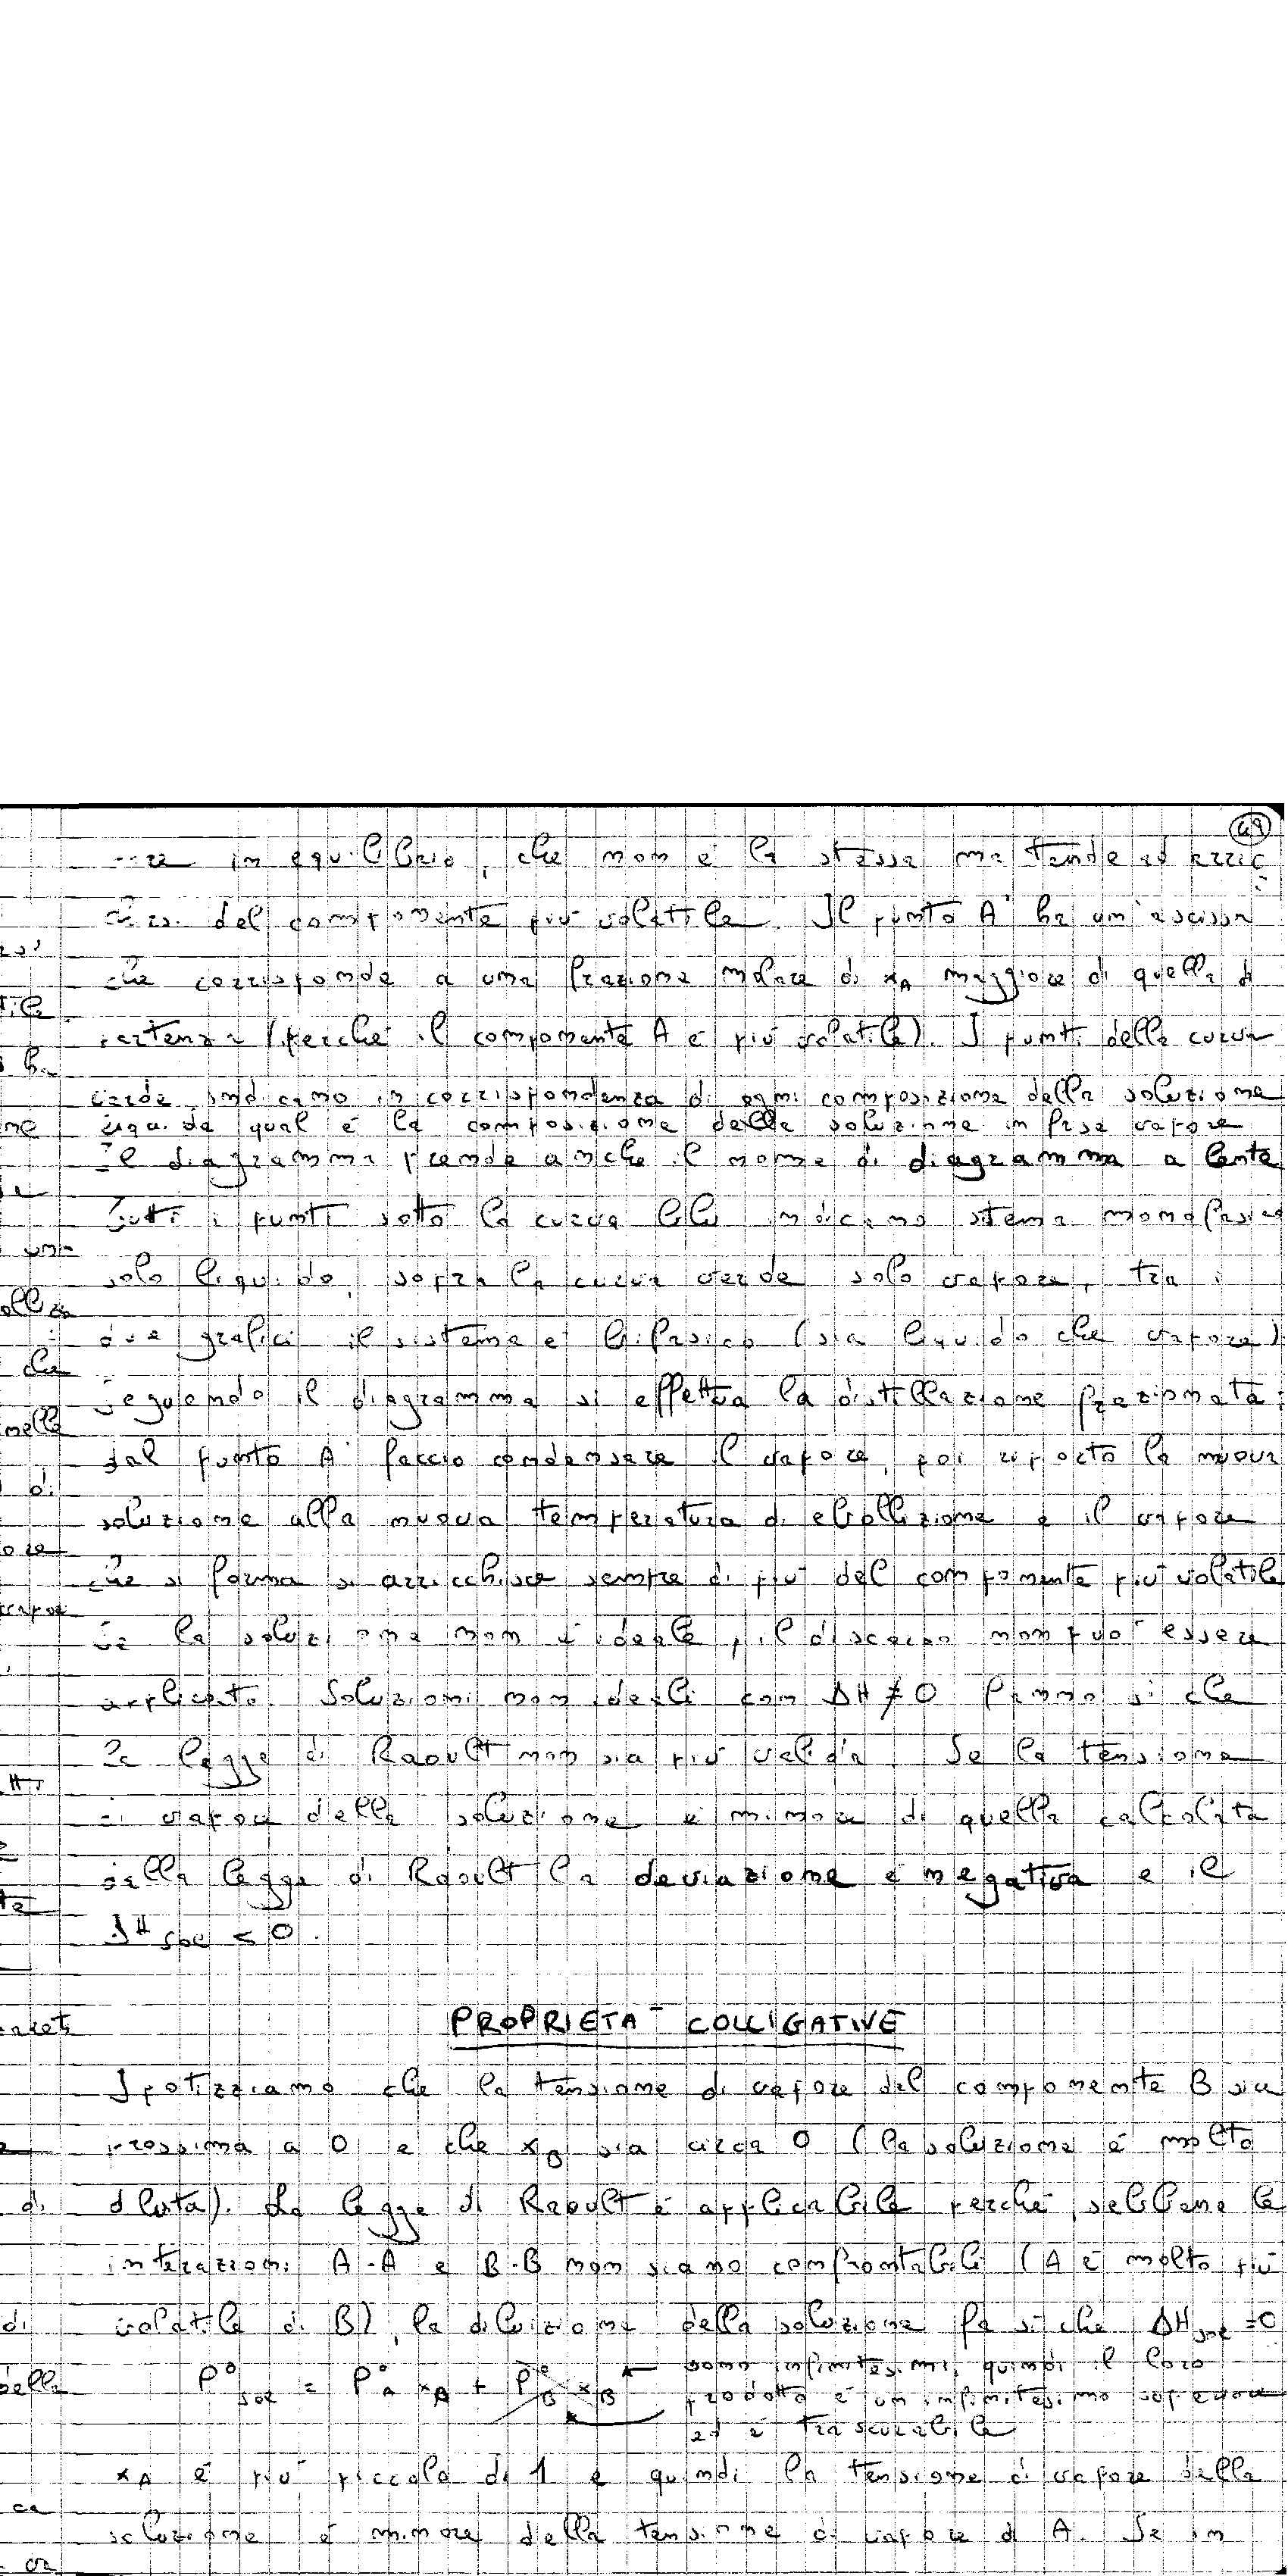 49
in equilibrio, che non è la stessa ma tende ad arric
del componente più volatile. Il punto A' ha un'ascissa
che corrisponde a una frazione molare di xA maggiore di quella di
partenza (perché il componente A è più volatile). I punti della curva
verde indicano in corrispondenza di ogni composizione della soluzione
liquida qual è la composizione della soluzione in fase vapore.
Il diagramma prende anche il nome di diagramma a lente
Tutti i punti sotto la curva blu indicano sistema monofasico
solo liquido, sopra la curva verde solo vapore, tra i
due grafici il sistema è bifasico (sia liquido che vapore)
Seguendo il diagramma si effettua la distillazione frazionata:
dal punto A' faccio condensare il vapore, poi riporto la nuova
soluzione alla nuova temperatura di ebollizione e il vapore
che si forma si arricchisce sempre di più del componente più volatile
Se la soluzione non è ideale, il discorso non può essere
applicato. Soluzioni non ideali con ΔH ≠ 0 fanno sì che
la legge di Raoult non sia più valida. Se la tensione
di vapore della soluzione è minore di quella calcolata
dalla legge di Raoult la deviazione è negativa e il
ΔH sol < 0.
PROPRIETA' COLLIGATIVE
Ipotizziamo che la tensione di vapore del componente B sia
prossima a 0 e che xB sia circa 0 (la soluzione è molto
diluita). La legge di Raoult è applicabile perché, sebbene le
interazioni A-A e B-B non siano confrontabili (A è molto più
volatile di B), la diluizione della soluzione fa sì che ΔH sol = 0
P° sol = P°A xA + P°B xB
sono infinitesimi, quindi il loro
prodotto è un infinitesimo superiore
ed è trascurabile
xA è più piccola di 1 e quindi la tensione di vapore della
soluzione è minore della tensione di vapore di A. Se in